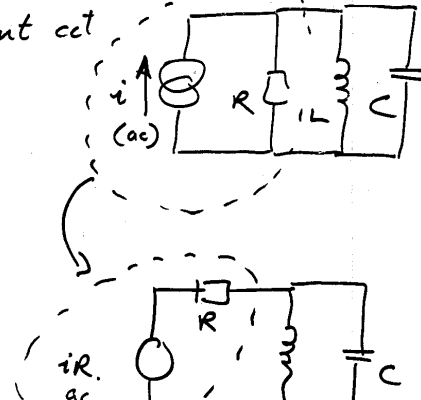 nt cct
i
(ac)
R
L
C
R
iR.
ac
C